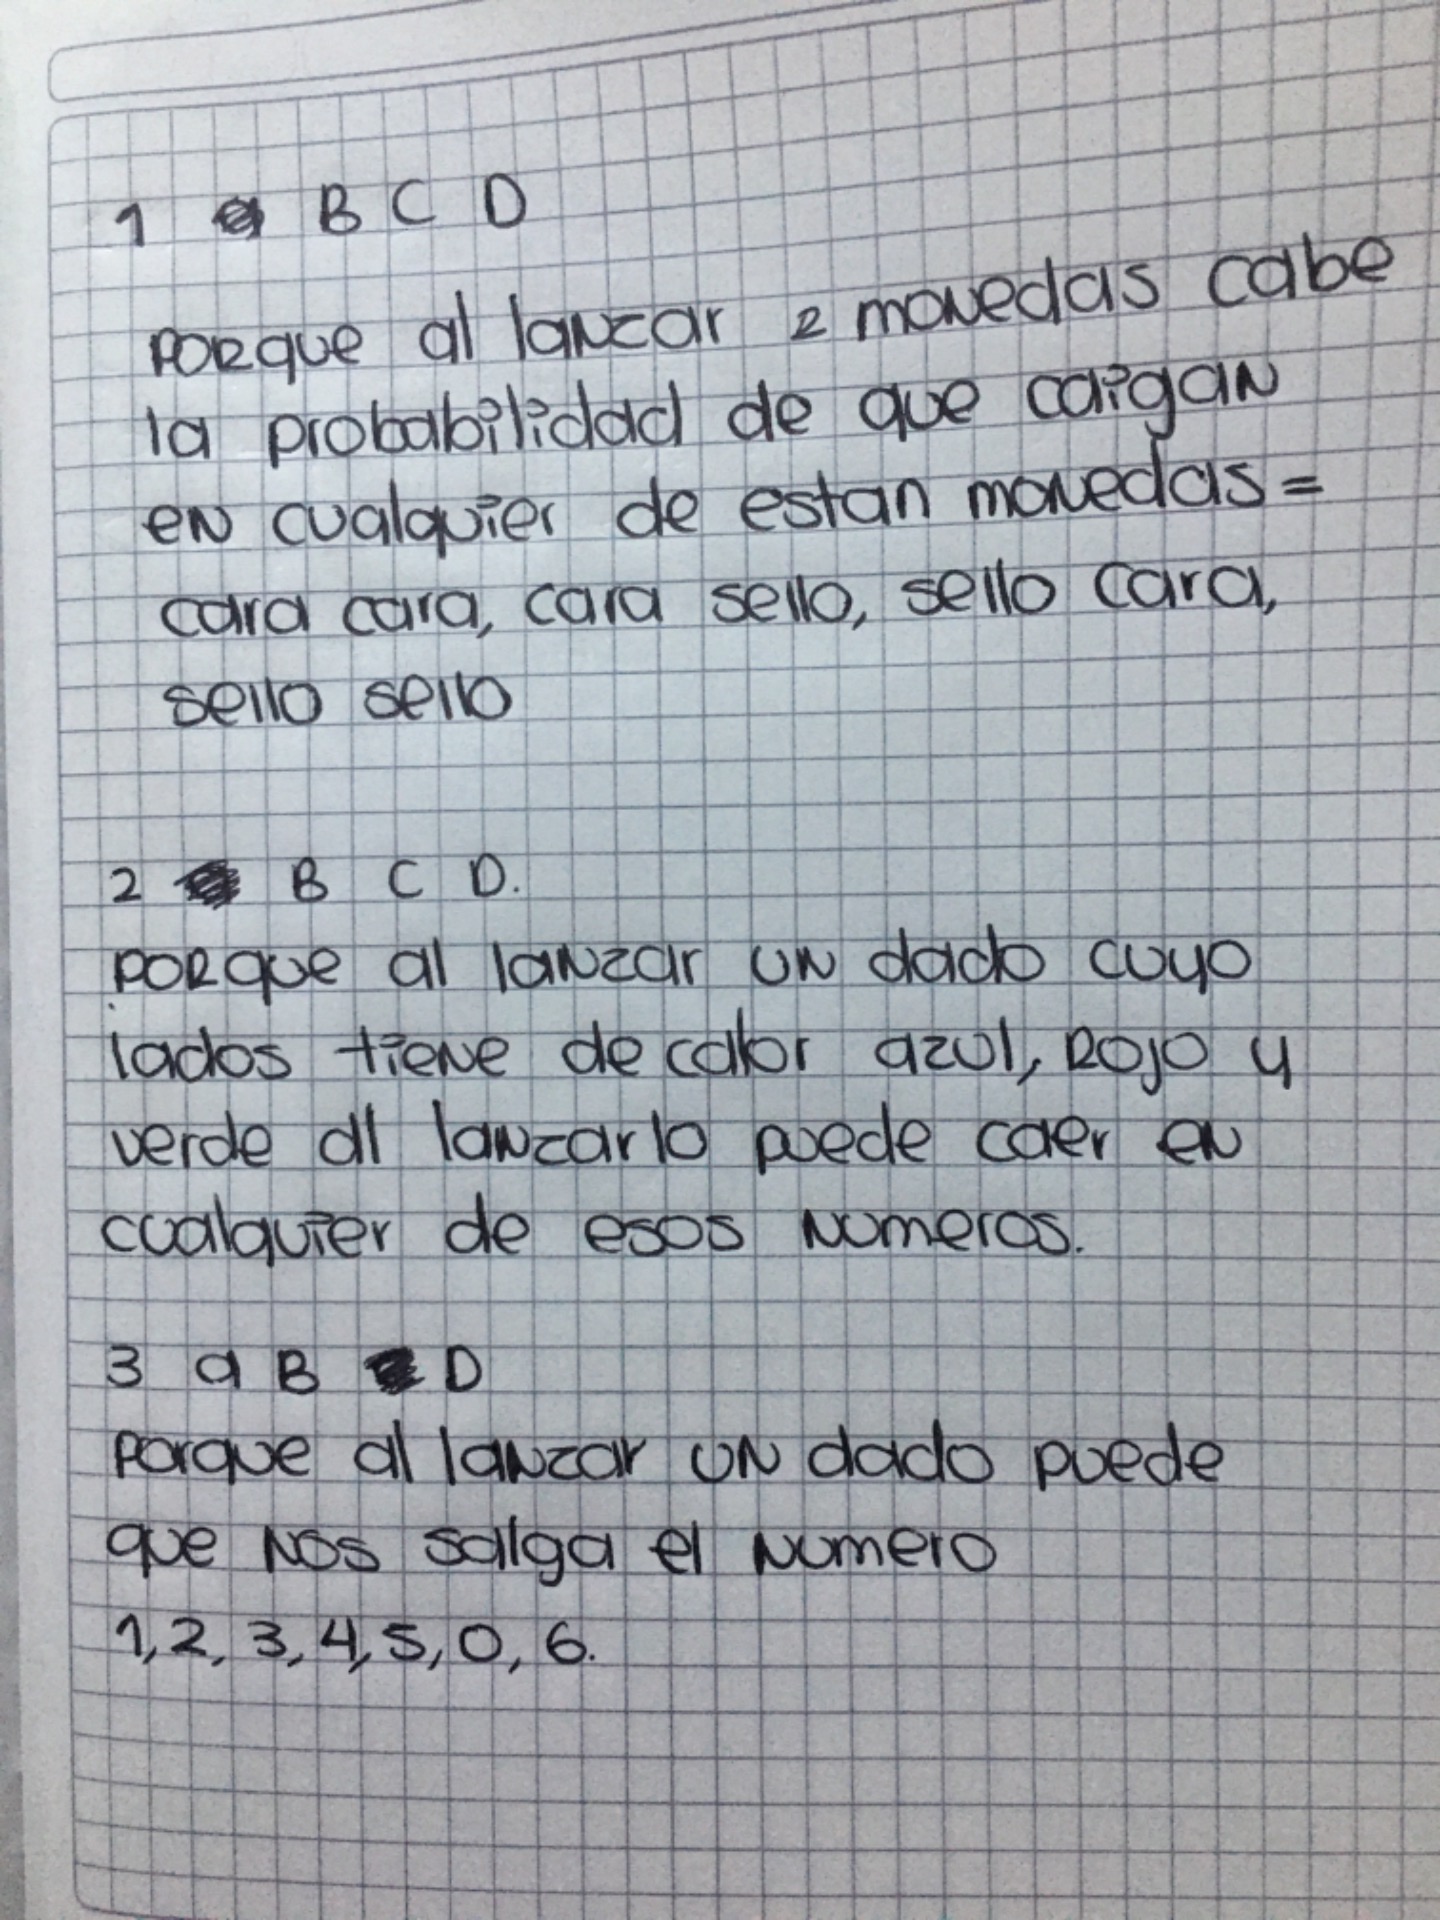 1 a B C D
porque al lanzar 2 monedas cabe
la probabilidad de que caigan
en cualquier de estan monedas =
cara cara, cara sello, sello cara,
sello sello
2 B C D.
porque al lanzar un dado cuyo
lados tiene de color azul, Rojo y
verde al lanzarlo puede caer en
cualquier de esos numeros.
3 a B D
porque al lanzar un dado puede
que nos salga el numero
1, 2, 3, 4, 5, 0, 6.